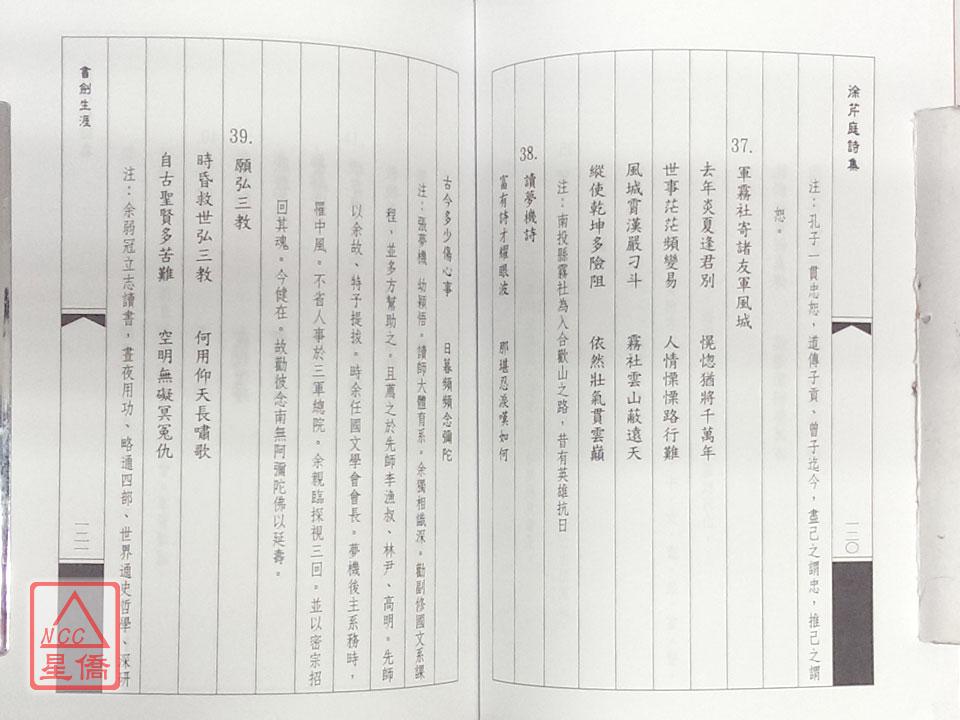 涂芹庭詩集
一二〇
注：孔子一貫忠恕，道傳子貢、曾子迄今，盡己之謂忠，推己之謂
恕。
37. 軍霧社寄諸友軍風城
去年炎夏逢君別 愰惚猶將千萬年
世事茫茫頻變易 人情慄慄路行難
風城霄漢嚴刁斗 霧社雲山蔽遠天
縱使乾坤多險阻 依然壯氣貫雲巔
注：南投縣霧社為入合歡山之路，昔有英雄抗日
38. 讀夢機詩
富有詩才耀眼波 那堪忍淚嘆如何
古今多少傷心事 日暮頻頻念彌陀
注：張夢機，幼穎悟。讀師大體育系。余獨相識深。勸副修國文系課
程，並多方幫助之。且薦之於先師李漁叔、林尹、高明。先師
以余故、特予提拔。時余任國文學會會長。夢機後主系務時，
罹中風。不省人事於三軍總院。余親臨探視三回。並以密宗招
回其魂。今健在。故勸彼念南無阿彌陀佛以延壽。
39. 願弘三教
時昏救世弘三教 何用仰天長嘯歌
自古聖賢多苦難 空明無礙冥冤仇
注：余弱冠立志讀書，晝夜用功、略通四部、世界通史哲學、深研
書劍生涯
一二一
NCC
星僑